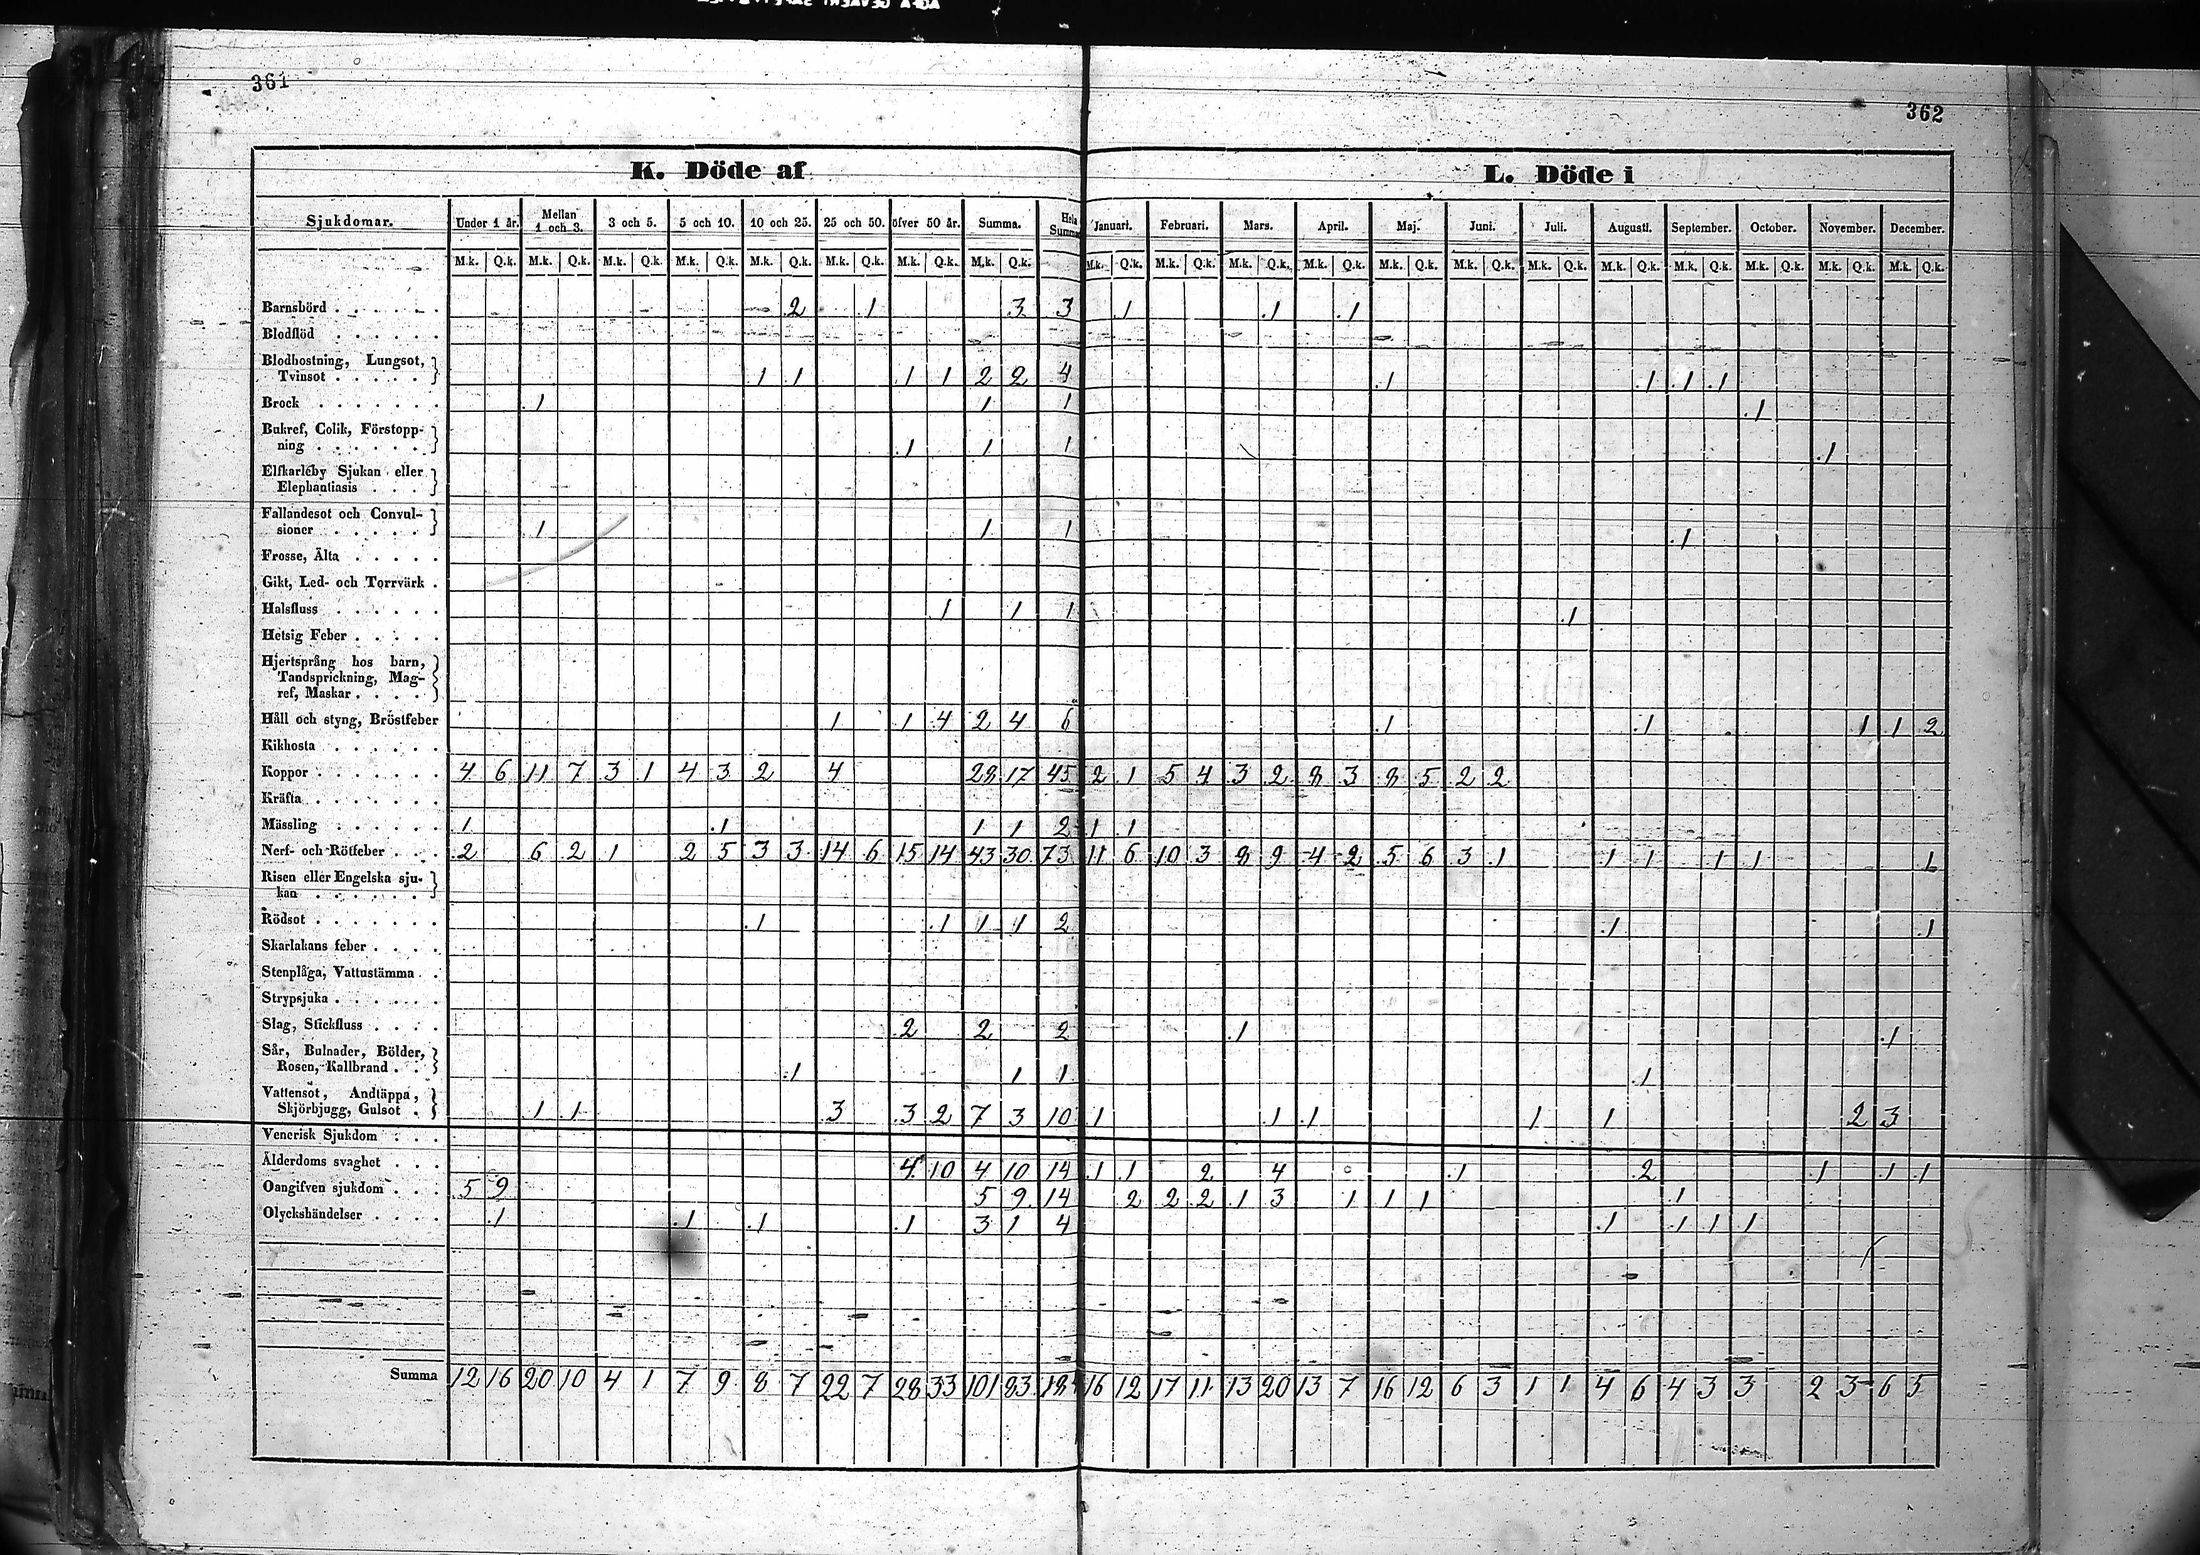 361
362
K. Döde af
L. Döde i
Sjukdomar. Under 1 år. Mellan 1 och 3. 3 och 5. 5 och 10. 10 och 25. 25 och 50. öfver 50 år. Summa. Hela Summa Januari. Februari. Mars. April. Maj. Juni. Juli. Augusti. September. October. November. December.
M.k. Q.k. M.k. Q.k. M.k. Q.k. M.k. Q.k. M.k. Q.k. M.k. Q.k. M.k. Q.k. M.k. Q.k. M.k. Q.k. M.k. Q.k. M.k. Q.k. M.k. Q.k. M.k. Q.k. M.k. Q.k. M.k. Q.k. M.k. Q.k. M.k. Q.k. M.k. Q.k. M.k. Q.k. M.k. Q.k.
Barnsbörd 2 1 3 3 1 1 1
Blodflöd
Blodhostning, Lungsot,
Tvinsot 1 1 1 1 2 2 4 1 1 1 1
Brock 1 1 1 1
Bukref, Colik, Förstopp-
ning 1 1 1 1
Elfkarleby Sjukan eller
Elephantiasis
Fallandesot och Convul-
sioner 1 1 1 1
Frosse, Älta
Gikt, Led- och Torrvärk
Halsfluss 1 1 1 1
Hetsig Feber
Hjertsprång hos barn,
Tandsprickning, Mag-
ref, Maskar
Håll och styng, Bröstfeber 1 1 4 2 4 6 1 1 1 1 2
Kikhosta
Koppor 4 6 11 7 3 1 4 3 2 4 28 17 45 2 1 5 4 3 2 8 3 8 5 2 2
Kräfta
Mässling 1 1 1 1 2 1 1
Nerf- och Rötfeber 2 6 2 1 2 5 3 3 14 6 15 14 43 30 73 11 6 10 3 8 9 4 2 5 6 3 1 1 1 1 1 1
Risen eller Engelska sju-
kan
Rödsot 1 1 1 1 2 1 1
Skarlakans feber
Stenplåga, Vattustämma
Strypsjuka
Slag, Stickfluss 2 2 2 1 1
Sår, Bulnader, Bölder,
Rosen, Kallbrand 1 1 1 1
Vattensot, Andtäppa,
Skjörbjugg, Gulsot 1 1 3 3 2 7 3 10 1 1 1 1 1 2 3
Venerisk Sjukdom
Ålderdoms svaghet 4 10 4 10 14 1 1 2 4 1 2 1 1 1
Oangifven sjukdom 5 9 5 9 14 2 2 2 1 3 1 1 1 1
Olyckshändelser 1 1 1 1 3 1 4 1 1 1 1
Summa 12 16 20 10 4 1 7 9 8 7 22 7 28 33 101 83 184 16 12 17 11 13 20 13 7 16 12 6 3 1 1 4 6 4 3 3 2 3 6 5